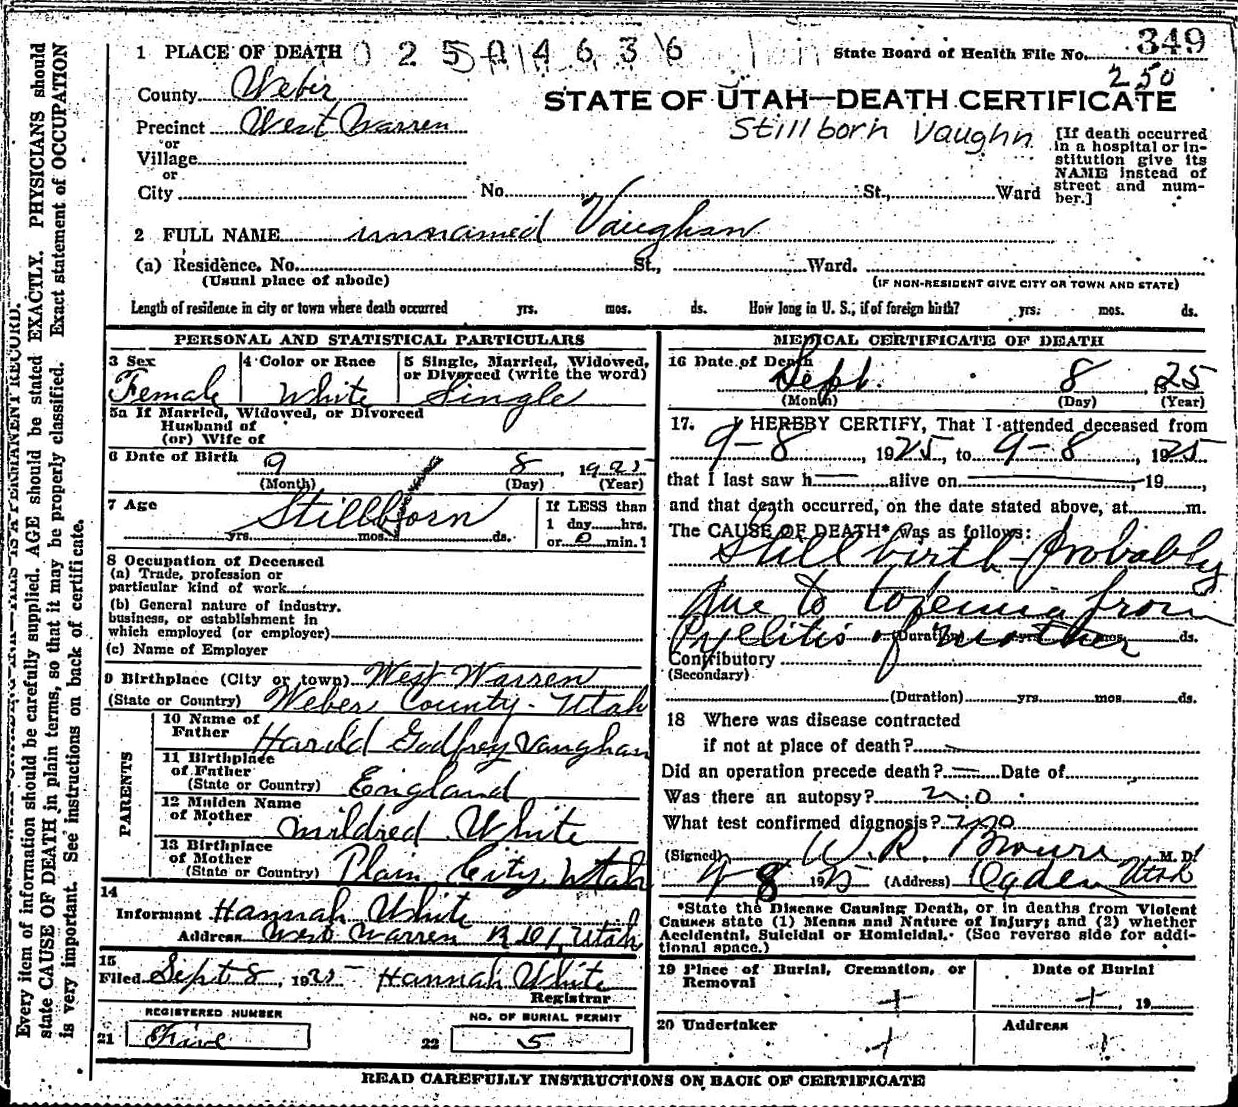 Every item of information should be carefully supplied. AGE should be stated EXACTLY. PHYSICIANS should
state CAUSE OF DEATH in plain terms, so that it may be properly classified. Exact statement of OCCUPATION
is very important. See instructions on back of certificate.
1 PLACE OF DEATH
State Board of Health File No. 349
250
County Weber
STATE OF UTAH—DEATH CERTIFICATE
Precinct West Warren
Stillborn Vaughn
or
Village
or
City No. St., Ward
[If death occurred
in a hospital or in-
stitution give its
NAME instead of
street and num-
ber.]
2 FULL NAME unnamed Vaughan
(a) Residence. No. St., Ward.
(Usual place of abode) (IF NON-RESIDENT GIVE CITY OR TOWN AND STATE)
Length of residence in city or town where death occurred yrs. mos. ds. How long in U. S., if of foreign birth? yrs. mos. ds.
PERSONAL AND STATISTICAL PARTICULARS
3 Sex
Female
4 Color or Race
White
5 Single, Married, Widowed,
or Divorced (write the word)
Single
5a If Married, Widowed, or Divorced
Husband of
(or) Wife of
6 Date of Birth 9 8, 1925
(Month) (Day) (Year)
7 Age
Stillborn
yrs. mos. ds.
If LESS than
1 day hrs.
or 0 min.?
8 Occupation of Deceased
(a) Trade, profession or
particular kind of work
(b) General nature of industry,
business, or establishment in
which employed (or employer)
(c) Name of Employer
9 Birthplace (City or town) West Warren
(State or Country) Weber County - Utah
PARENTS
10 Name of
Father Harold Godfrey Vaughan
11 Birthplace
of Father
(State or Country) England
12 Maiden Name
of Mother Mildred White
13 Birthplace
of Mother
(State or Country) Plain City, Utah
14
Informant Hannah White
Address West Warren Utah
15
Filed Sept 8, 1925 Hannah White
Registrar
REGISTERED NUMBER
21 Five
NO. OF BURIAL PERMIT
22 5
MEDICAL CERTIFICATE OF DEATH
16 Date of Death
Sept. 8 1925
(Month) (Day) (Year)
17. I HEREBY CERTIFY, That I attended deceased from
9-8, 1925, to 9-8, 1925
that I last saw h alive on , 19 ,
and that death occurred, on the date stated above, at m.
The CAUSE OF DEATH* was as follows:
Still birth - Probably
due to toxemia from
Pyelitis of mother
(Duration) yrs. mos. ds.
Contributory
(Secondary)
(Duration) yrs. mos. ds.
18 Where was disease contracted
if not at place of death?
Did an operation precede death? Date of
Was there an autopsy? no
What test confirmed diagnosis? no
(Signed) W. R. M. D.
9-8 1925 (Address) Ogden Utah
*State the Disease Causing Death, or in deaths from Violent
Causes state (1) Means and Nature of Injury; and (2) whether
Accidental, Suicidal or Homicidal. (See reverse side for addi-
tional space.)
19 Place of Burial, Cremation, or
Removal
Date of Burial
, 19
20 Undertaker
Address
READ CAREFULLY INSTRUCTIONS ON BACK OF CERTIFICATE